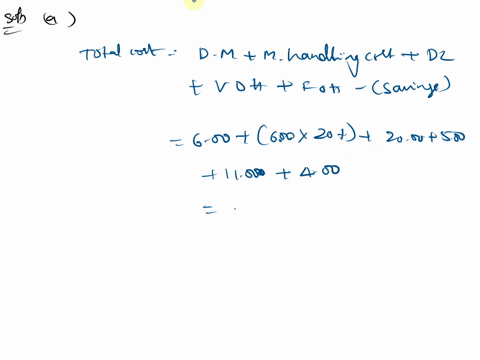 Soln (a)
Total cost = D.M + M.handling cost + DL
+ V OH + F OH - (savings)
= 6.00 + (600 × 20%) + 20.00 + 500
+ 11.000 + 4.00
= .